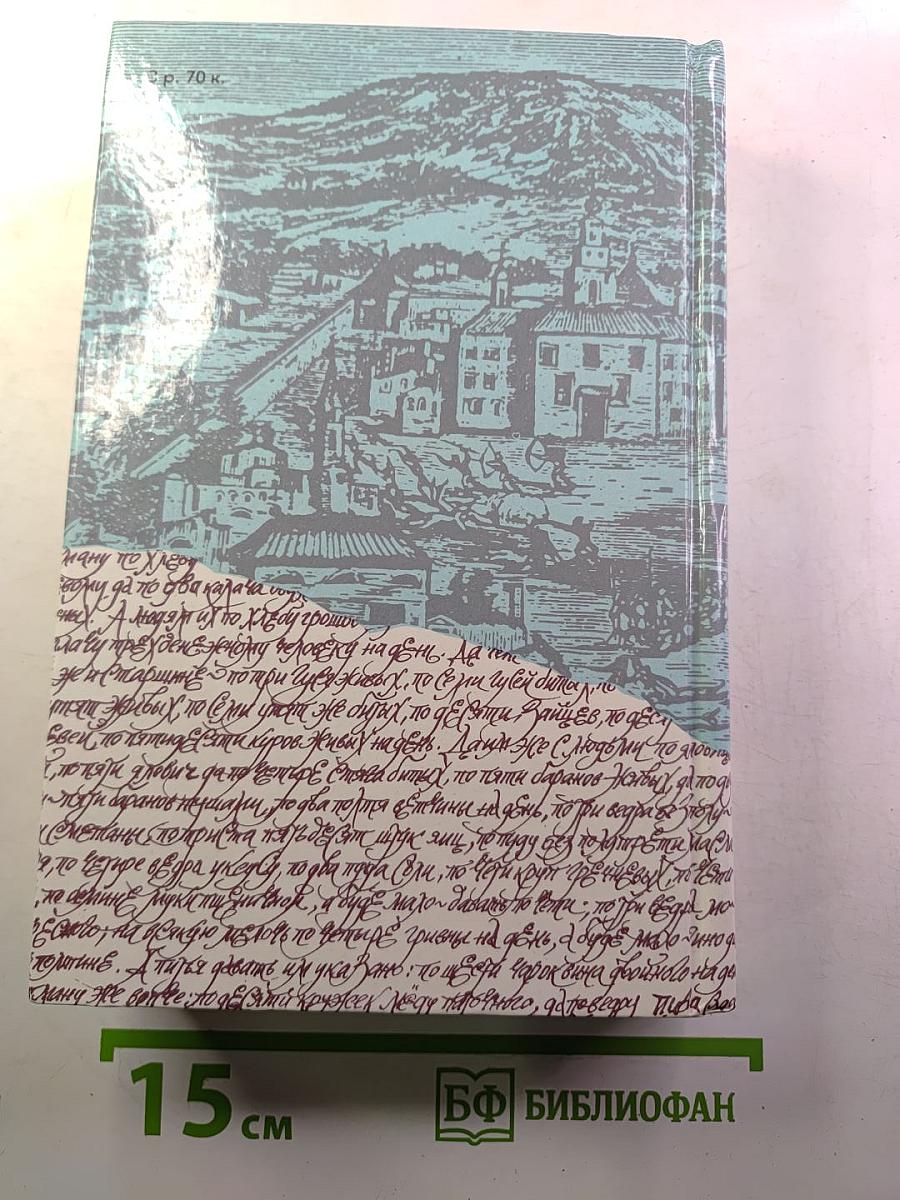 р. 70 к.
ману по хлебу
вому да по два калача
ных. А людям их по хлебу грошов
плачу трехденежному человеку на день. Да
же и старшине по три гуся живых, по семи гусей битых, по
утят живых, по семи утят же битых, по десяти зайцев, по деся
вей, по пятидесяти куров живых на день. Да им же с людьми по яловиц
, по пяти ялович да по четыре стява битых, по пяти баранов живых, да по д
пяти баранов тушами, по два полтя ветчины на день, по три ведра
сметаны, по триста пятьдесят штук яиц, по пуду без полутрети масл
я, по четыре ведра уксусу, по два пуда соли, по чети круп гречневых, по чети
, по осмине муки пшеничной, а буде мало давать по чети; по три ведра мо
на всякую мелочь по четыре гривны на день, а буде мало ино д
полтине. А питья давать им указано: по шести чарок вина двойного на де
ману же вопче: по десяти кружек мёду паточного, да по ведру пива
15 см
БФ БИБЛИОФАН